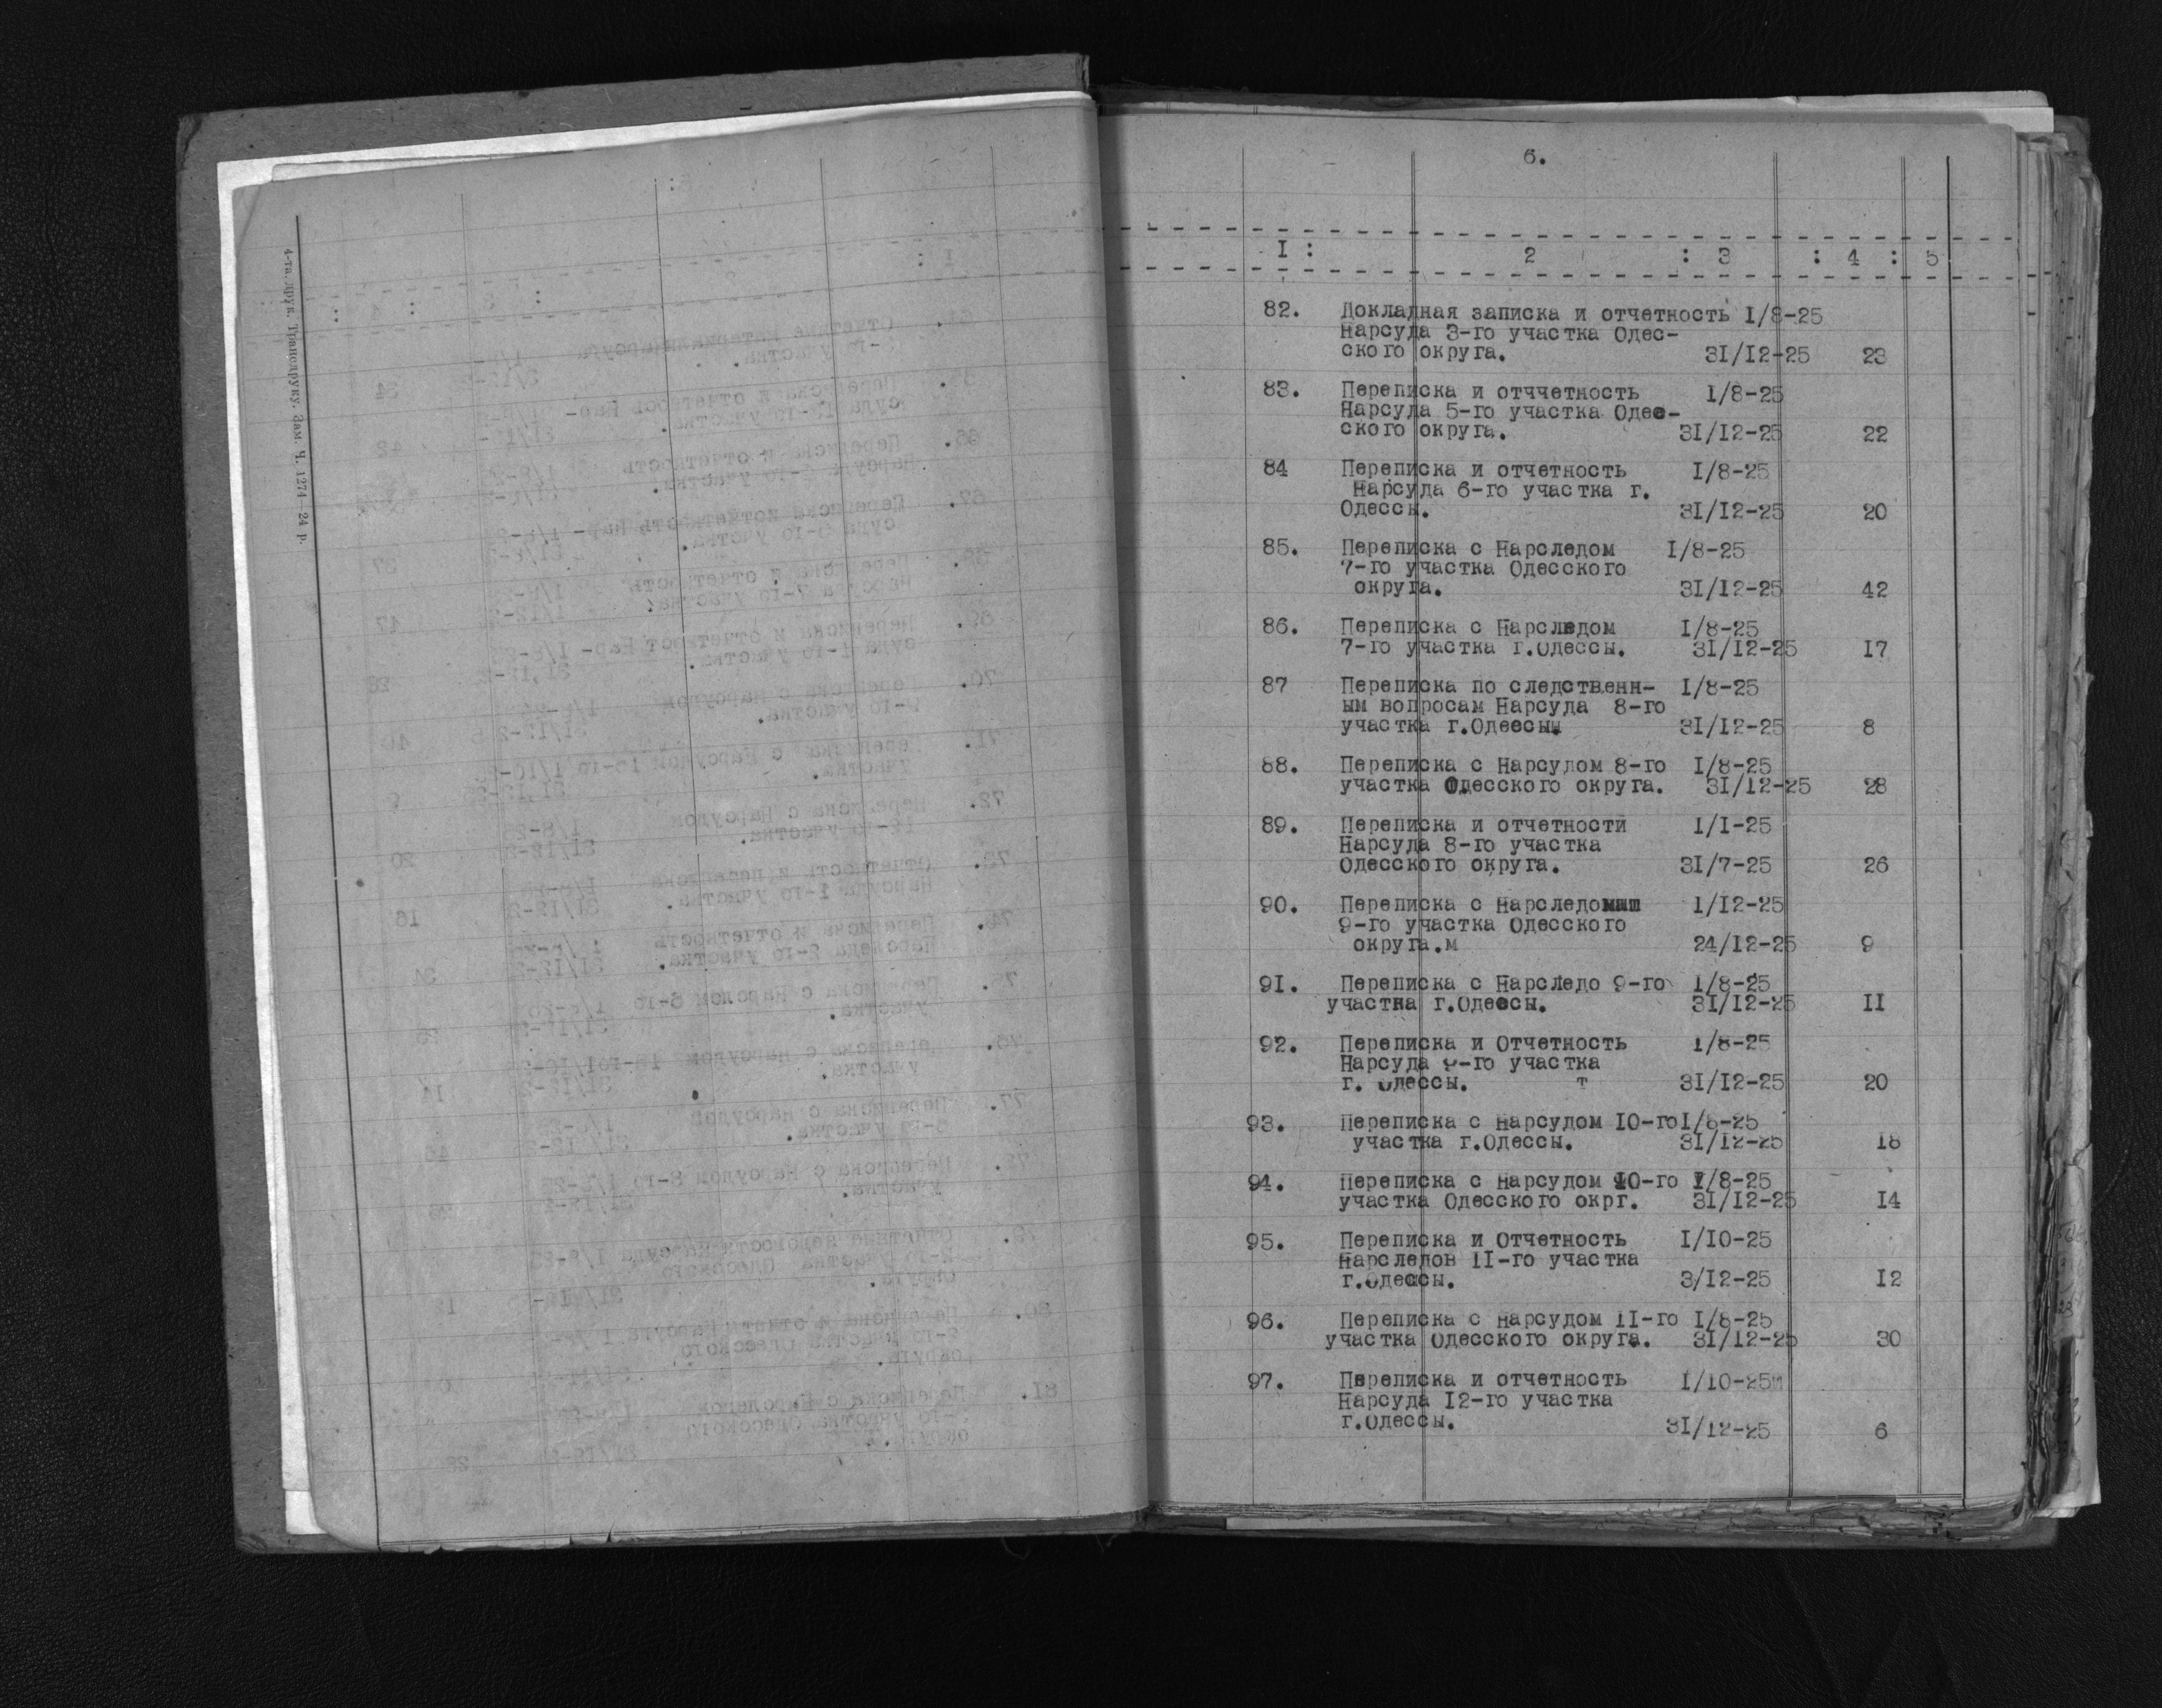 4-та друк. Трансдруку. Зам. Ч. 1274—24 р.
6.
I : 2 : 3 : 4 : 5
82. Докладная записка и отчетность I/8-25
Нарсуда 3-го участка Одес-
ского округа. 31/12-25 23
83. Переписка и отччетность 1/8-25
Нарсуда 5-го участка Одес-
ского округа. 31/12-25 22
84 Переписка и отчетность I/8-25
Нарсуда 6-го участка г.
Одессы. 31/12-25 20
85. Переписка с Нарследом I/8-25
7-го участка Одесского
округа. 31/12-25 42
86. Переписка с Нарследом I/8-25
7-го участка г.Одессы. 31/12-25 I7
87 Переписка по следственн- I/8-25
ым вопросам Нарсуда 8-го
участка г.Одессы 31/12-25 8
88. Переписка с Нарсудом 8-го I/8-25
участка Одесского округа. 31/12-25 28
89. Переписка и отчетности 1/I-25
Нарсуда 8-го участка
Одесского округа. 31/7-25 26
90. Переписка с Нарследом 1/12-25
9-го участка Одесского
округа.м 24/12-25 9
91. Переписка с Нарследо 9-го 1/8-25
участка г.Одессы. 31/12-25 II
92. Переписка и Отчетность 1/8-25
Нарсуда 9-го участка
г. Одессы. т 31/12-25 20
93. Переписка с Нарсудом 10-го1/8-25
участка г.Одессы. 31/12-25 18
94. Переписка с Нарсудом 10-го I/8-25
участка Одесского окрг. 31/12-25 I4
95. Переписка и Отчетность 1/10-25
Нарследов II-го участка
г.Одессы. 3/12-25 I2
96. Переписка с Нарсудом 11-го I/8-25
участка Одесского округа. 31/12-25 30
97. Переписка и отчетность 1/10-25м
Нарсуда I2-го участка
г.Одессы. 31/12-25 6